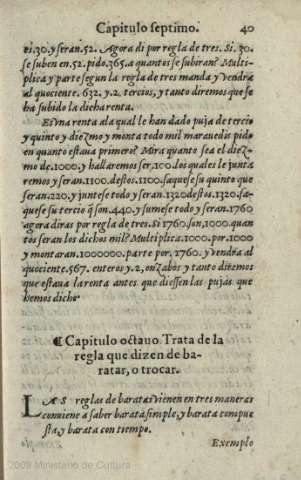 Capitulo septimo. 40
ei.30.y ſeran.52. Agora di por regla de tres. Si.30.
ſe ſuben en.52.pido.365.a quantos ſe ſubiran? Multi-
plica y parte ſegun la regla de tres manda y vendra
al quociente. 632. y.2. tercios, y tanto diremos que ſe
ha ſubido la dicha renta.
Es vna renta ala qual le han dado puja de tercio
y quinto y diezmo y monta todo mil marauedis pido
en quanto eſtaua primero? Mira quanto ſea el diez-
mo de.1000.y hallaremos ſer.100.los quales le junta
remos y ſeran.1100.deſtos.1100.ſaqueſe ſu quinto que
ſeran.220.y junteſe todo y ſeran.1320 deſtos.1320.ſa-
queſe ſu tercio q̃ ſon.440.y ſumeſe todo y ſeran.1760
agora diras por regla de tres. Si 1760.ſon.1000.quan
tos ſeran los dichos mil? Multiplica.1000.por.1000
y montaran.1000000.parte por.1760. y vendra al
quociente.567. enteros y.2,onzabos y tanto diremos
que eſtaua la renta antes que dieſſen las pujas que
hemos dicho
¶ Capitulo octauo Trata de la
regla que dizen de ba-
ratar, o trocar.
LAS reglas de baratas vienen en tres maneras
conuiene a ſaber barata ſimple, y barata compue
ſta, y barata con tiempo.
Exemplo
2009 Ministerio de Cultura